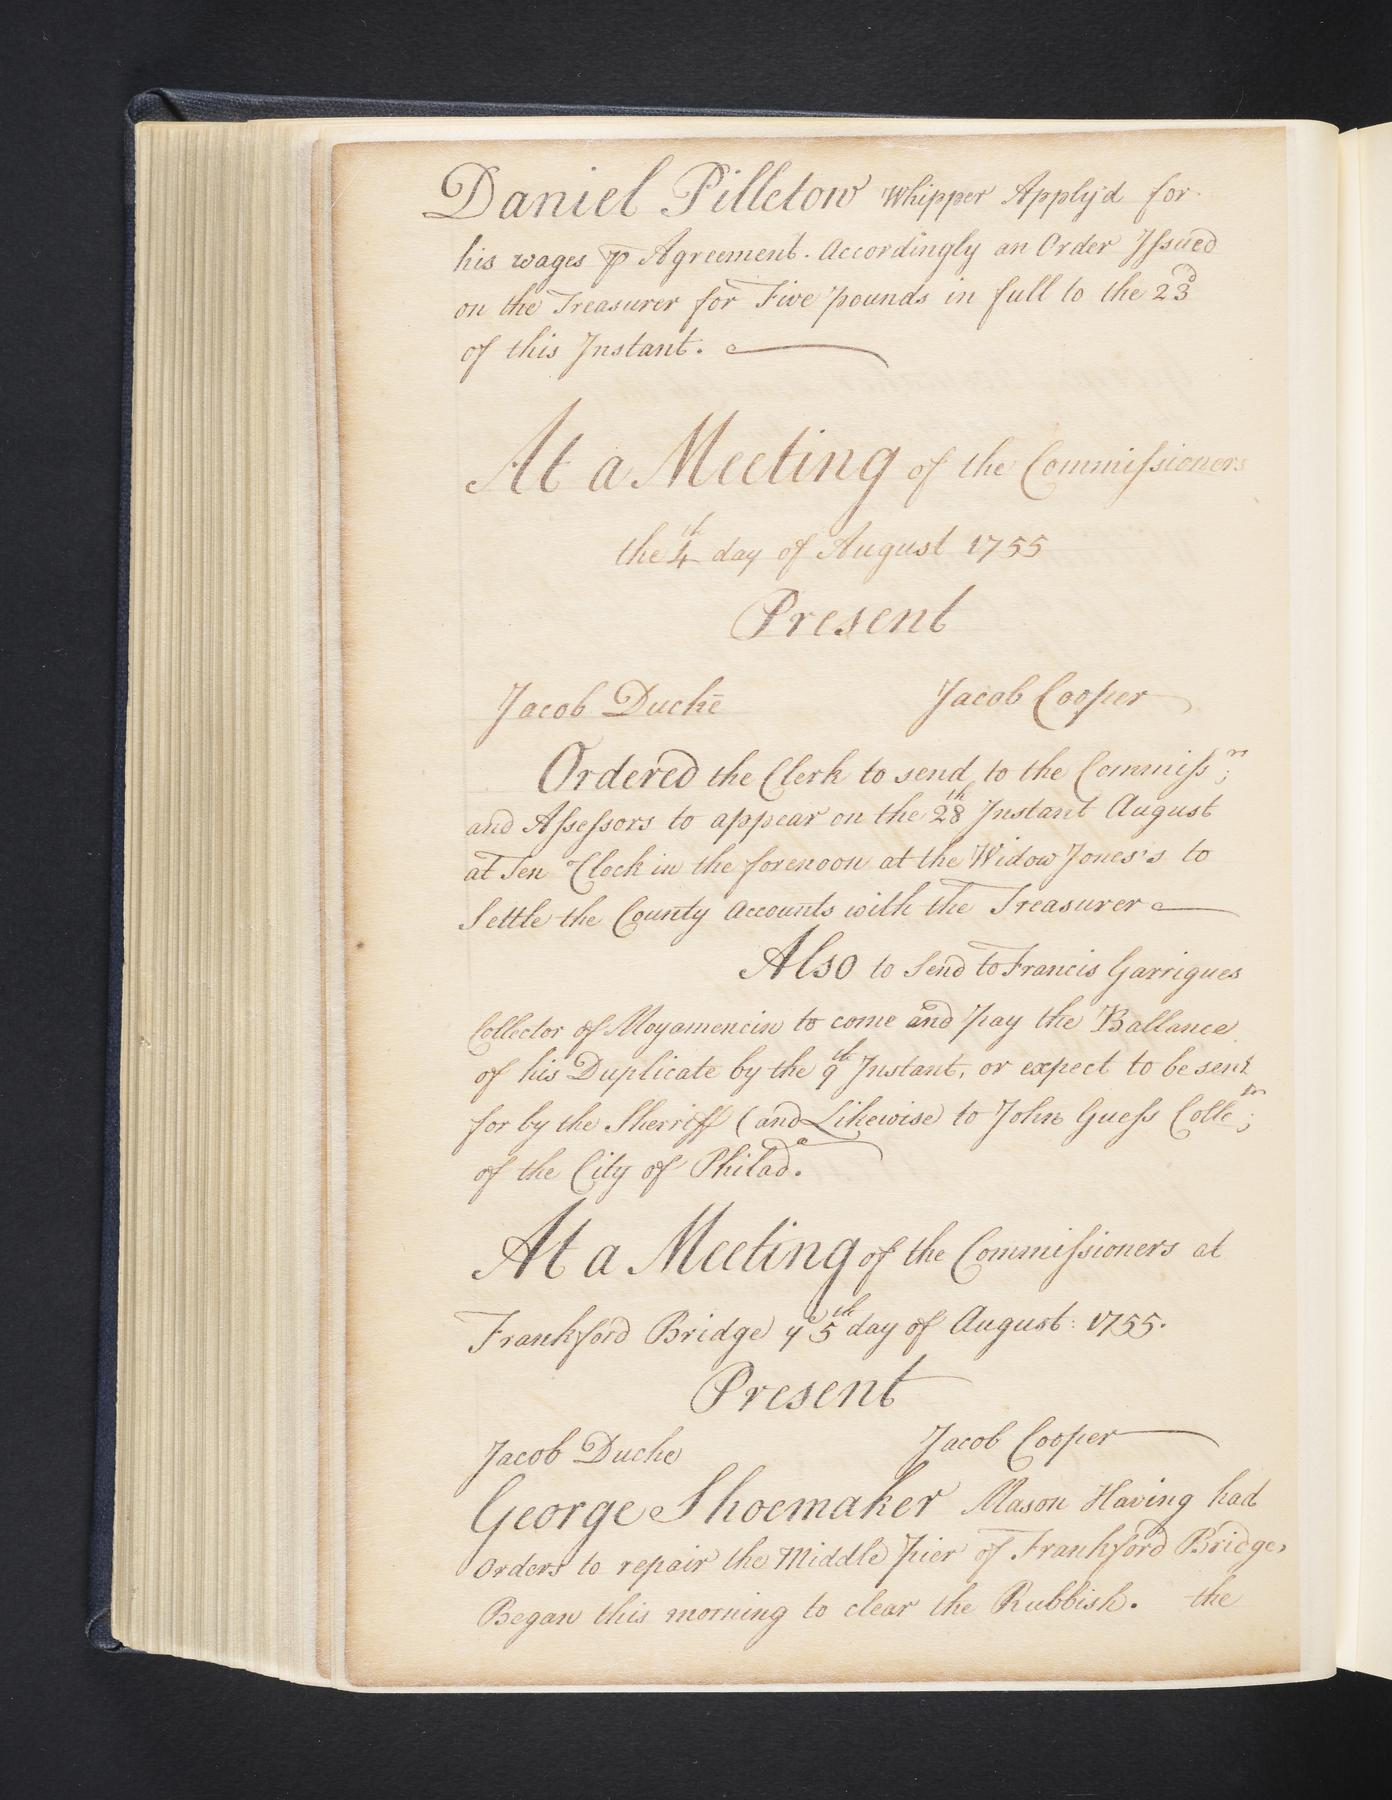 Daniel Pilletow Whipper Apply'd for
his wages ⅌ Agreement. Accordingly an Order Issued
on the Treasurer for Five pounds in full to the 23d
of this Instant.
At a Meeting of the Commissioners
the 4th day of August 1755
Present
Jacob Duchē Jacob Cooper
Ordered the Clerk to send to the Commissrs;
and Assessors to appear on the 28th Instant August
at Ten O'Clock in the forenoon at the Widow Jones's to
Settle the County Accounts with the Treasurer
Also to Send to Francis Garrigues
Collector of Moyamencin to come and pay the Ballance
of his Duplicate by the 9th Instant, or expect to be sent
for by the Sherriff (and Likewise) to John Guess Collectr;
of the City of Philada.
At a Meeting of the Commissioners at
Frankford Bridge ye 5th day of August: 1755.
Present
Jacob Duche Jacob Cooper
George Shoemaker Mason Having had
Orders to repair the Middle pier of Frankford Bridge,
Began this morning to clear the Rubbish. the